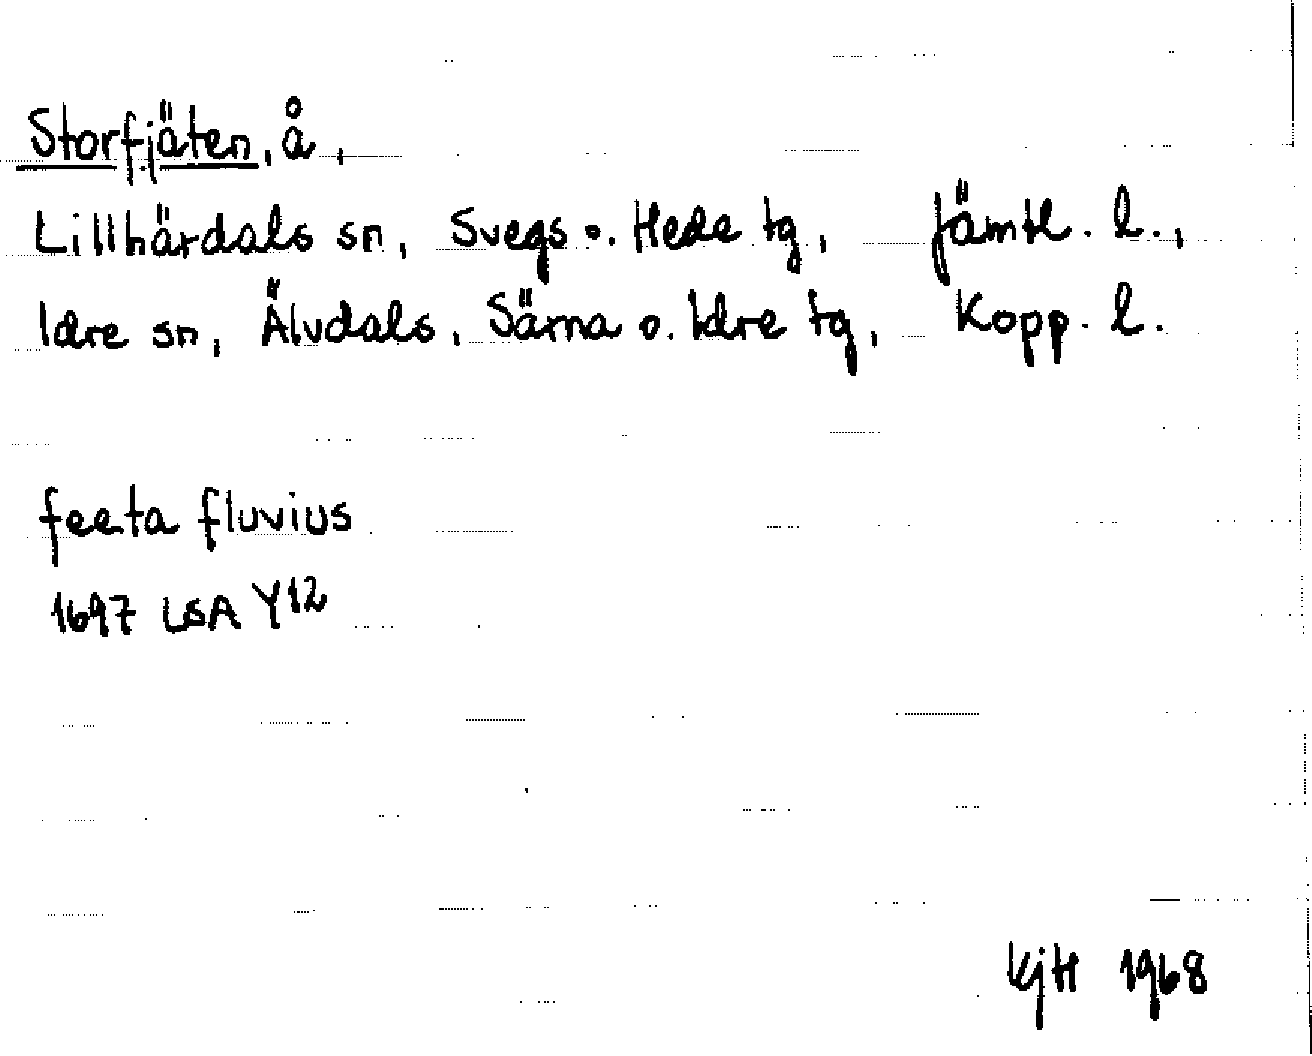 Storfjäten, å,
Lillhärdals sn, Svegs o. Hede tg, Jämtl. l.,
Idre sn, Älvdals, Särna o. Idre tg, Kopp. l.
feeta fluvius
1697 LSA Y12
KjH 1968